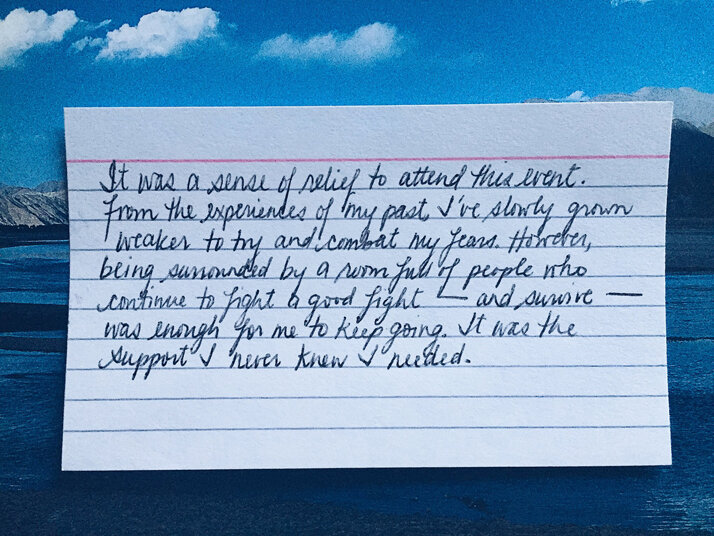 It was a sense of relief to attend this event.
From the experiences of my past, I've slowly grown
weaker to try and combat my fears. However,
being surrounded by a room full of people who
continue to fight a good fight — and survive —
was enough for me to keep going. It was the
support I never knew I needed.